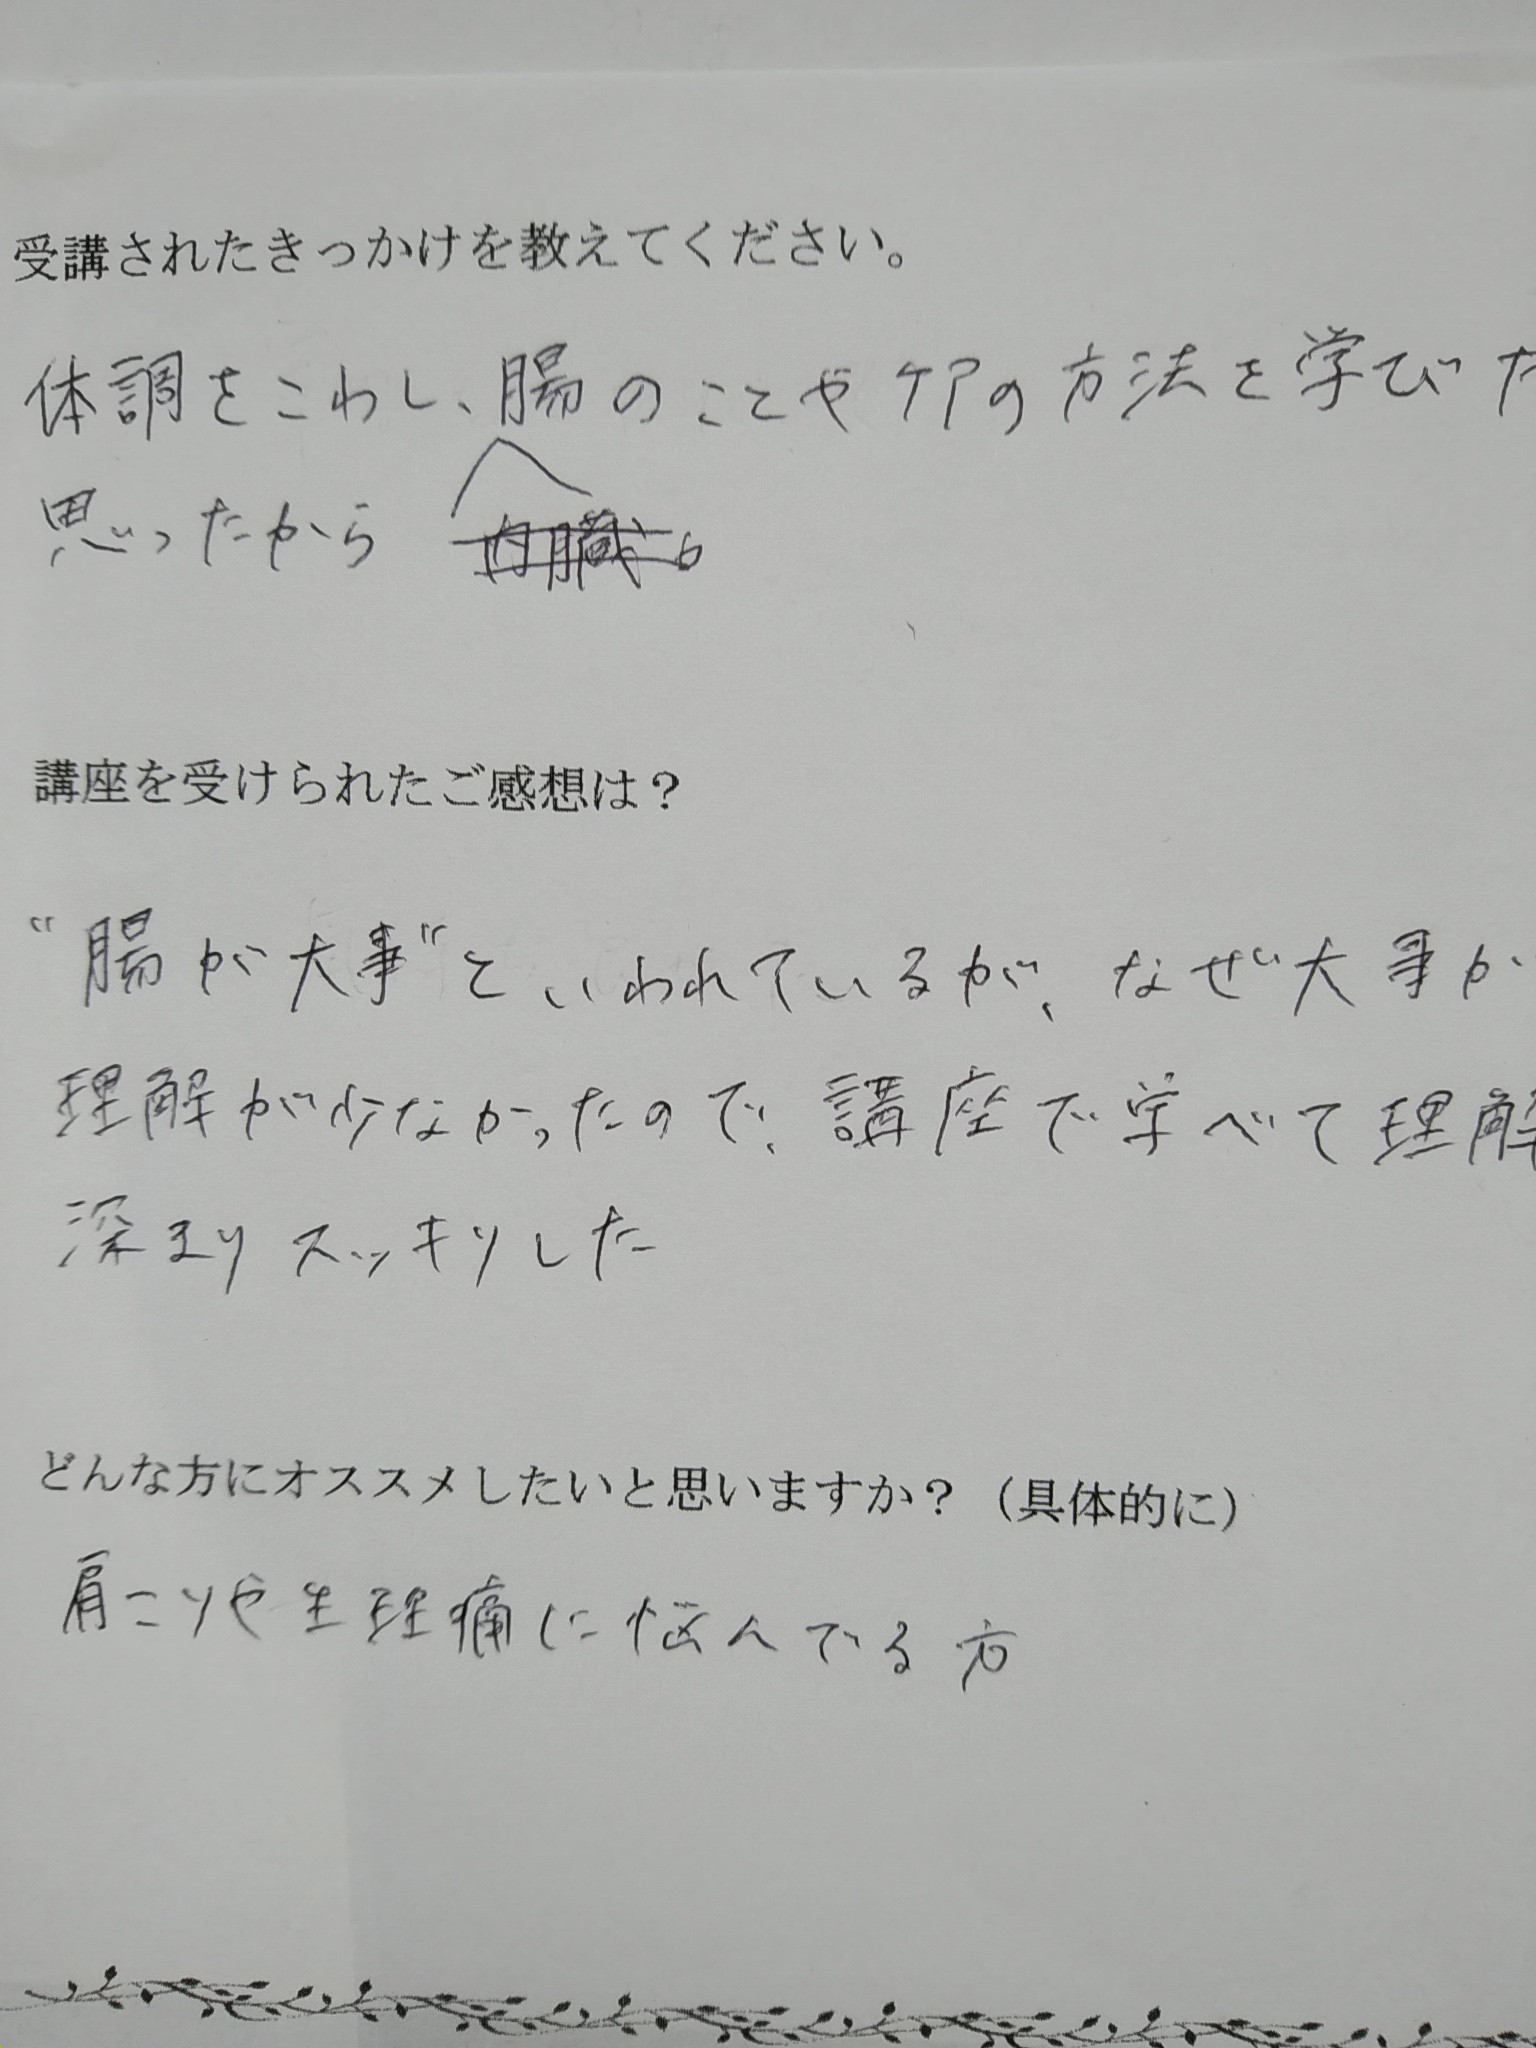 受講されたきっかけを教えてください。
体調をこわし、腸のことやケアの方法を学びた
思ったから 内臓
講座を受けられたご感想は？
“腸が大事”といわれているが、なぜ大事か
理解が少なかったので、講座で学べて理解
深まりスッキリした
どんな方にオススメしたいと思いますか？（具体的に）
肩こりや生理痛に悩んでる方